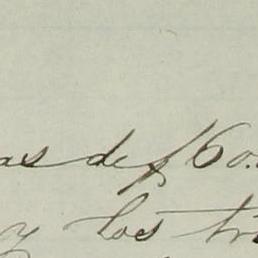 as de $60.
y los tr